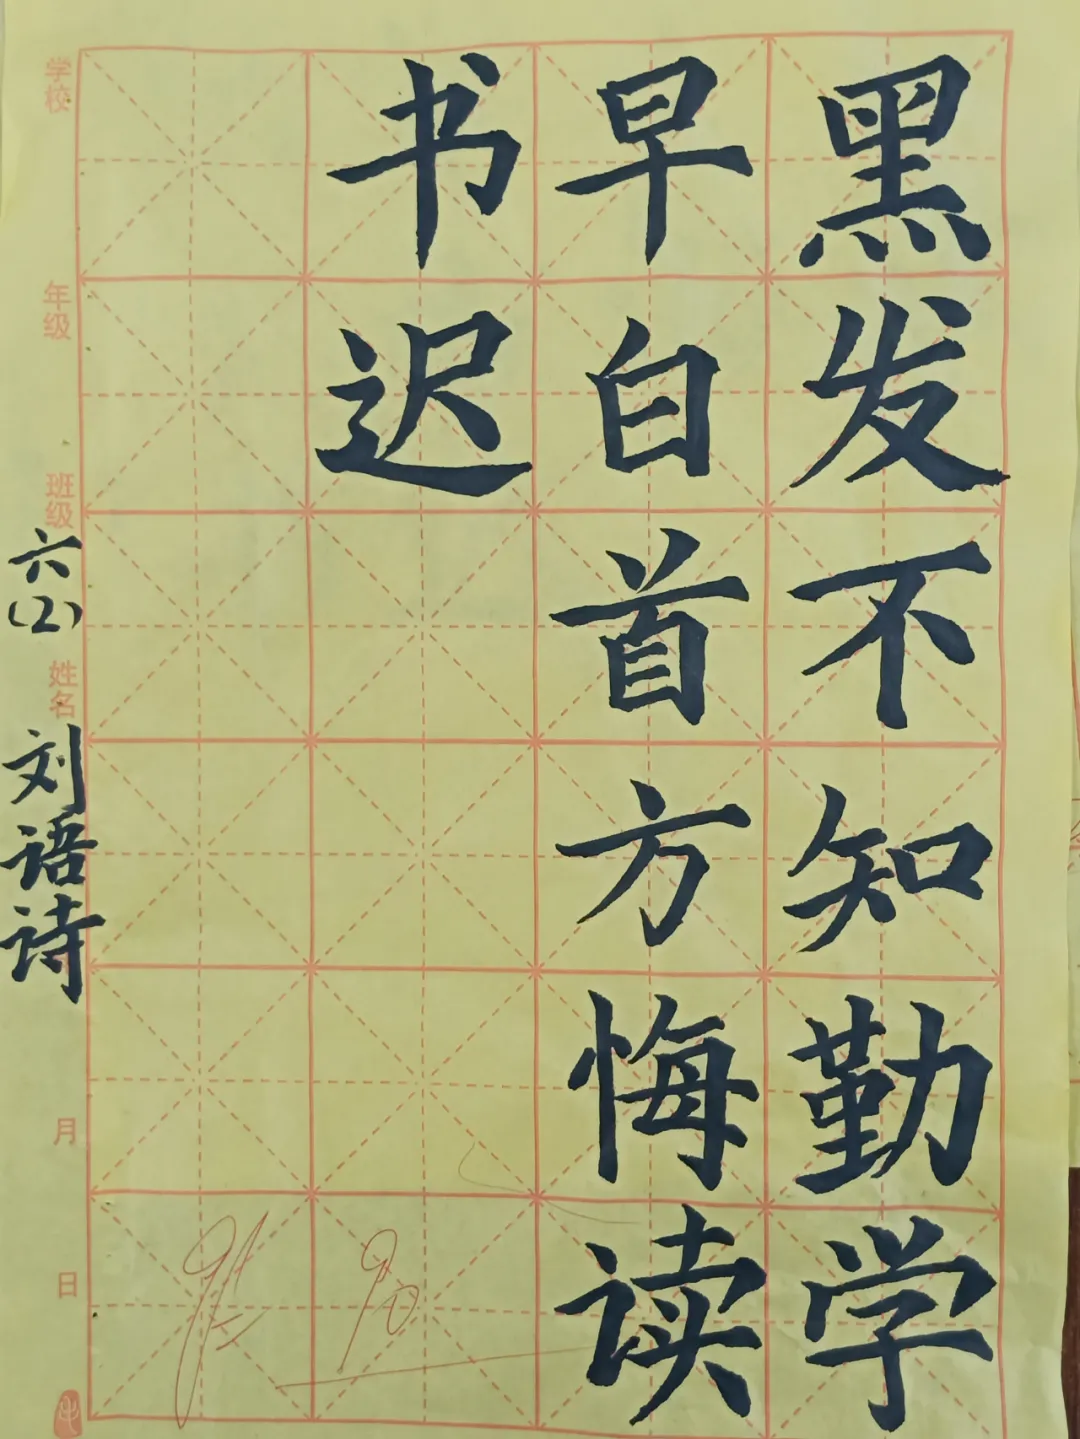 黑发不知勤学
早白首方悔读
书迟
学校
年级
班级
六(2)
姓名
刘语诗
月
日
90